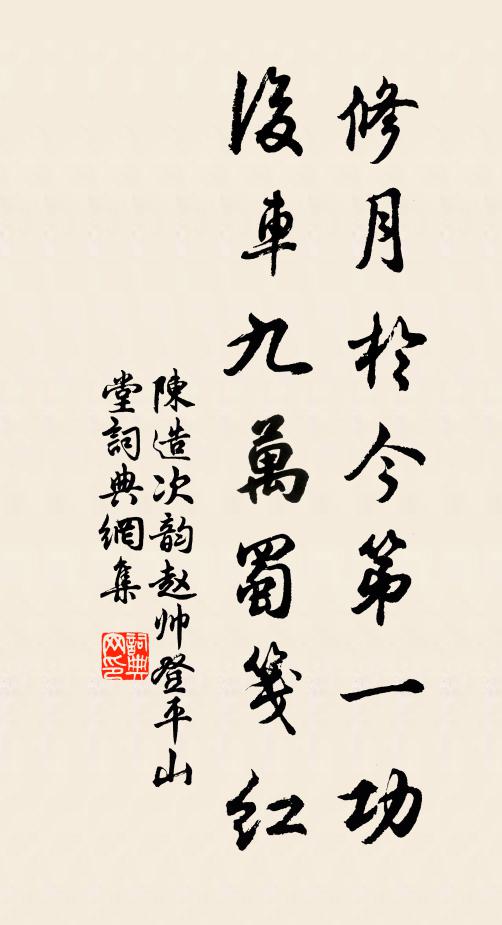 修月於今第一功
後車九萬蜀箋紅
陳造次韵赵帅登平山
堂詞典網集
詞典网印